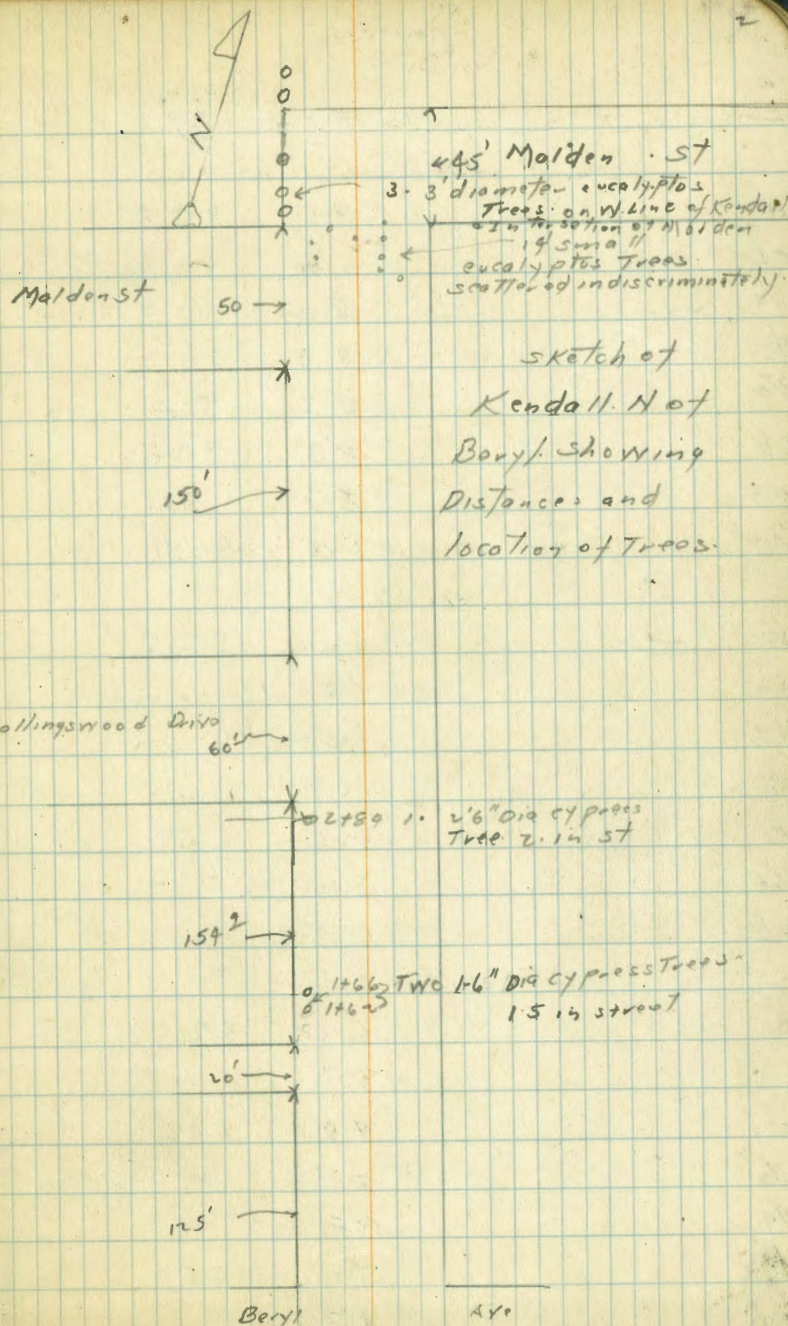 2
N
45' Malden St
3. 3' diameter eucalyptos
Trees on W Line of Kendall
In tersetion of Malden
14 small
eucalyptos Trees
scattered indiscriminately
Malden St
50
Sketch of
Kendall. N of
Beryl. Showing
Distances and
location of Trees.
150'
ollingswood Drive
60'
2+89 1. 2'6" Dia cypress
Tree 2. in st
154²
1+66 Two 1-6" Dia cypress Trees
1+62 1.5 in street
20'
125'
Beryl Ave